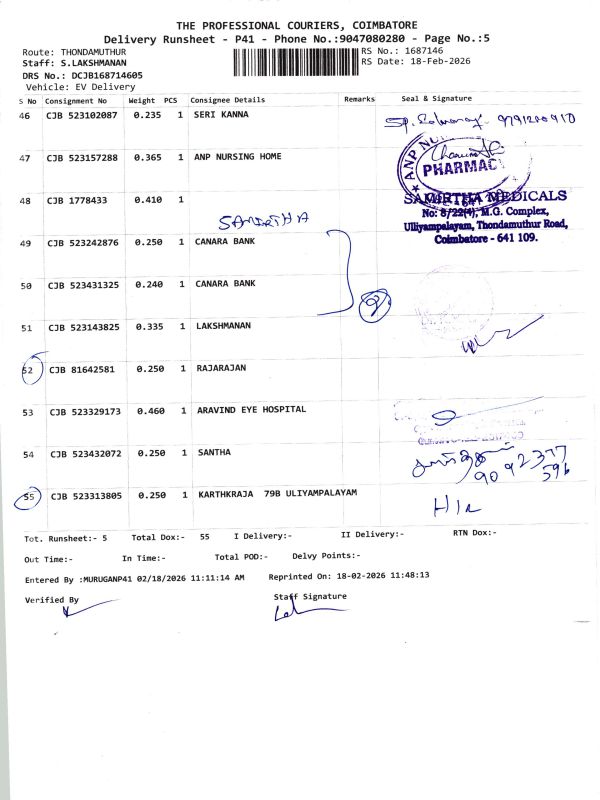 THE PROFESSIONAL COURIERS, COIMBATORE
Delivery Runsheet - P41 - Phone No.:9047080280 - Page No.:5
Route: THONDAMUTHUR RS No.: 1687146
Staff: S.LAKSHMANAN RS Date: 18-Feb-2026
DRS No.: DCJB168714605
Vehicle: EV Delivery
S No Consignment No Weight PCS Consignee Details Remarks Seal & Signature
46 CJB 523102087 0.235 1 SERI KANNA
47 CJB 523157288 0.365 1 ANP NURSING HOME
PHARMACY
48 CJB 1778433 0.410 1
SAMIRTHA MEDICALS
No: 8/22(4), M.G. Complex,
Ulliyampalayam, Thondamuthur Road,
Coimbatore - 641 109.
49 CJB 523242876 0.250 1 CANARA BANK
50 CJB 523431325 0.240 1 CANARA BANK
51 CJB 523143825 0.335 1 LAKSHMANAN
52 CJB 81642581 0.250 1 RAJARAJAN
53 CJB 523329173 0.460 1 ARAVIND EYE HOSPITAL
54 CJB 523432072 0.250 1 SANTHA
9092377
596
55 CJB 523313805 0.250 1 KARTHKRAJA 79B ULIYAMPALAYAM
Tot. Runsheet:- 5 Total Dox:- 55 I Delivery:- II Delivery:- RTN Dox:-
Out Time:- In Time:- Total POD:- Delvy Points:-
Entered By :MURUGANP41 02/18/2026 11:11:14 AM Reprinted On: 18-02-2026 11:48:13
Verified By Staff Signature